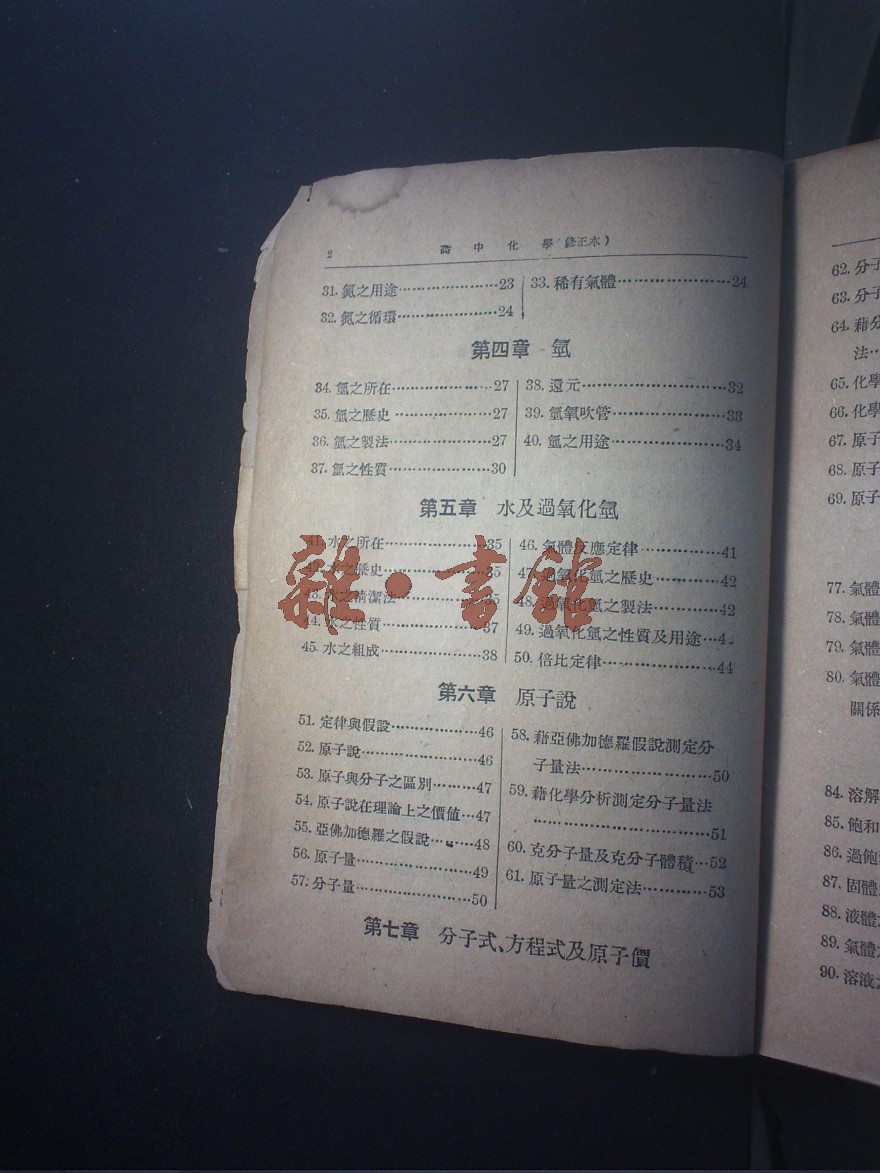 2
高中化學(修正本)
31. 氮之用途………………23
32. 氮之循環………………24
33. 稀有氣體………………24
第四章 氫
34. 氫之所在………………27
35. 氫之歷史………………27
36. 氫之製法………………27
37. 氫之性質………………30
38. 還元………………32
39. 氫氧吹管………………33
40. 氫之用途………………34
第五章 水及過氧化氫
41. 水之所在………………35
42. 水之歷史………………35
43. 水之清潔法………………35
44. 水之性質………………37
45. 水之組成………………38
46. 氣體反應定律………………41
47. 過氧化氫之歷史………………42
48. 過氧化氫之製法………………42
49. 過氧化氫之性質及用途…4
50. 倍比定律………………44
雜·書館
第六章 原子說
51. 定律與假設………………46
52. 原子說………………46
53. 原子與分子之區別………47
54. 原子說在理論上之價值…47
55. 亞佛加德羅之假說………48
56. 原子量………………49
57. 分子量………………50
58. 藉亞佛加德羅假說測定分
子量法………………50
59. 藉化學分析測定分子量法
………………51
60. 克分子量及克分子體積…52
61. 原子量之測定法…………53
第七章 分子式、方程式及原子價
62. 分子
63. 分子
64. 藉分
法…
65. 化學
66. 化學
67. 原子
68. 原子
69. 原子
77. 氣體
78. 氣體
79. 氣體
80. 氣體
關係
84. 溶解
85. 飽和
86. 過飽
87. 固體
88. 液體
89. 氣體
90. 溶液